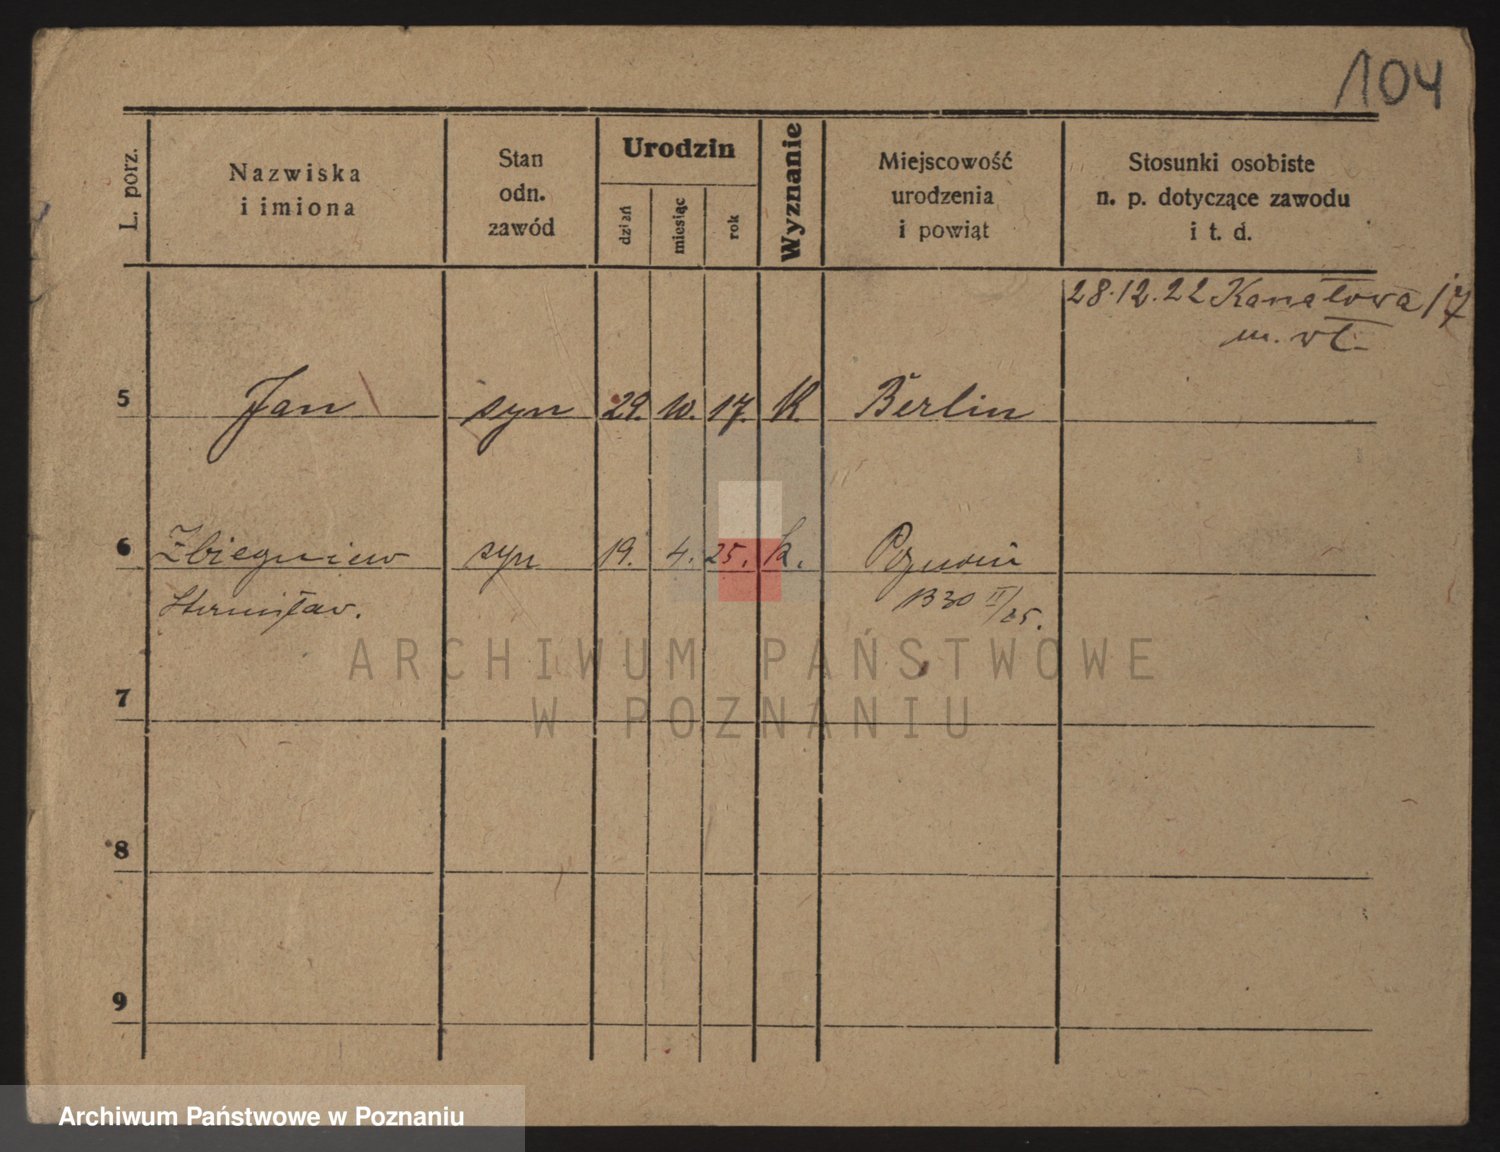 104
L. porz.
Nazwiska
i imiona
Stan
odn.
zawód
Urodzin
dzień
miesiąc
rok
Wyznanie
Miejscowość
urodzenia
i powiąt
Stosunki osobiste
n. p. dotyczące zawodu
i t. d.
28.12.22 Kanałowa 17
m. wł.
5 Jan syn 29. 10. 17. K. Berlin
6 Zbiegniew syn 19. 4. 25. k. Poznań
Stanisław. 1330 II/25.
7
8
9
ARCHIWUM PAŃSTWOWE
W POZNANIU
Archiwum Państwowe w Poznaniu